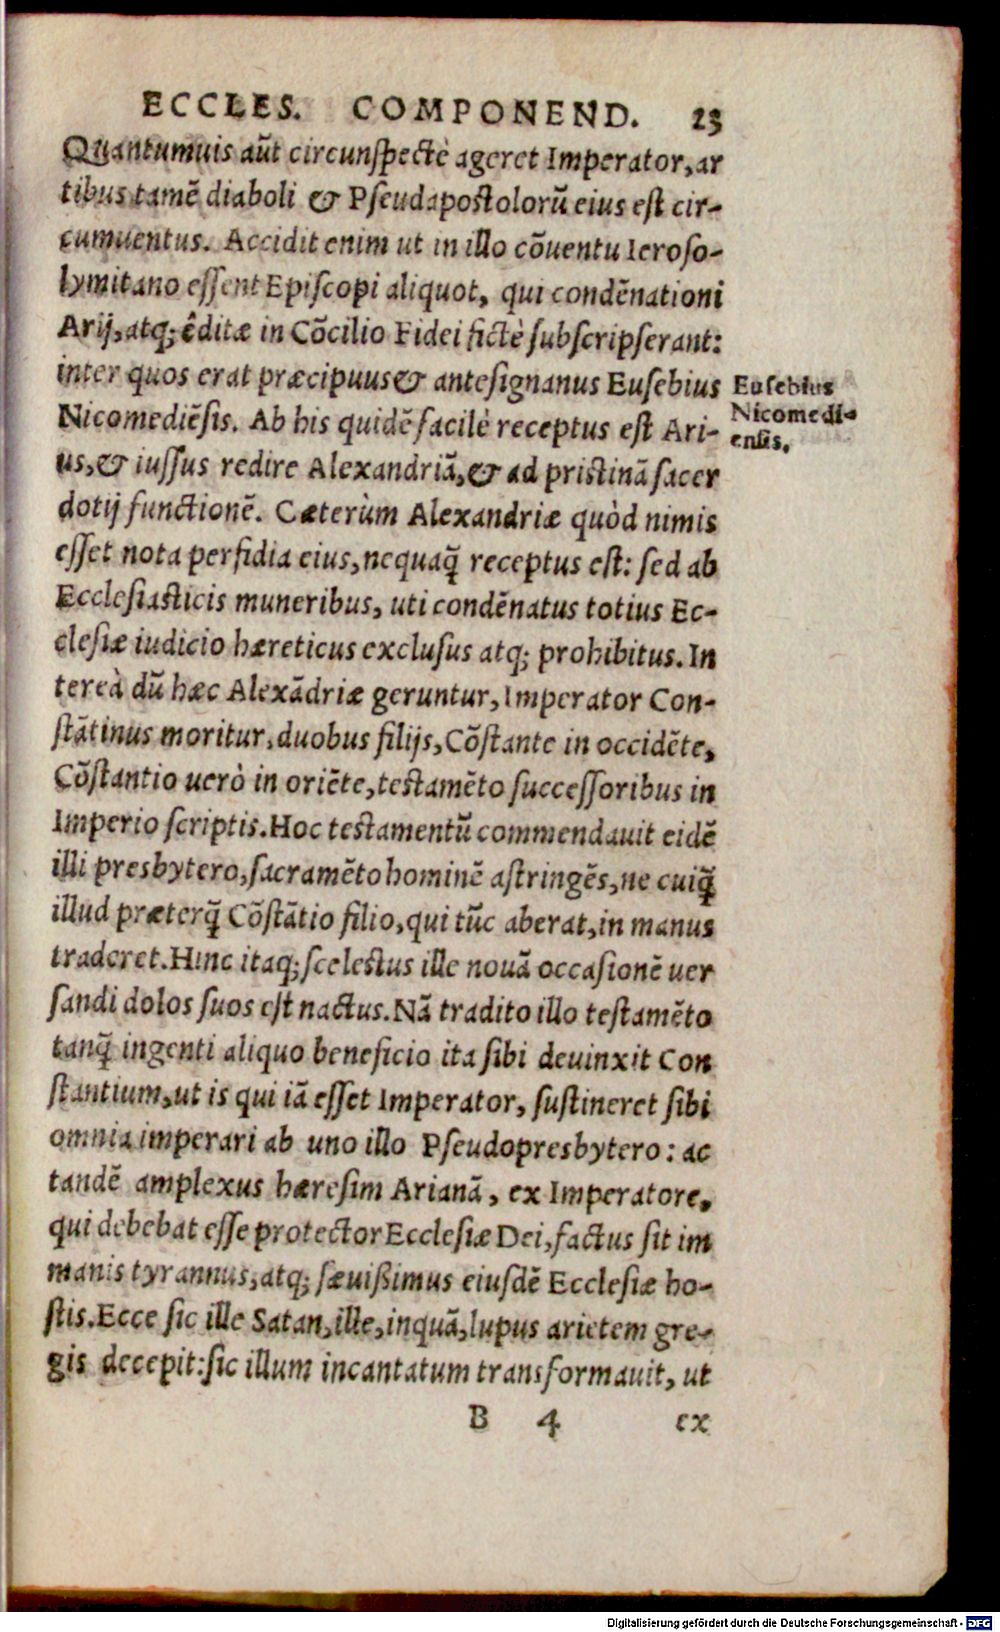 ECCLES. COMPONEND. 23
Quantumuis aũt circunspectè ageret Imperator, ar
tibus tamẽ diaboli & Pseudapostolorũ eius est cir-
cumuentus. Accidit enim ut in illo cõuentu Ieroso-
lymitano essent Episcopi aliquot, qui condẽnationi
Arij, atq; êditæ in Cõcilio Fidei fictè subscripserant:
inter quos erat præcipuus & antesignanus Eusebius
Eusebius
Nicomedi-
ensis.
Nicomediẽsis. Ab his quidẽ facilè receptus est Ari-
us, & iussus redire Alexandriã, & ad pristinã sacer
dotij functionẽ. Cæterùm Alexandriæ quòd nimis
esset nota perfidia eius, nequaq̃ receptus est: sed ab
Ecclesiasticis muneribus, uti condẽnatus totius Ec-
clesiæ iudicio hæreticus exclusus atq; prohibitus. In
tereà dũ hæc Alexãdriæ geruntur, Imperator Con-
stãtinus moritur, duobus filijs, Cõstante in occidẽte,
Cõstantio uerò in oriẽte, testamẽto successoribus in
Imperio scriptis. Hoc testamentũ commendauit eidẽ
illi presbytero, sacramẽto hominẽ astringẽs, ne cuiq̃
illud præterq̃ Cõstãtio filio, qui tũc aberat, in manus
traderet. Hinc itaq; scelestus ille nouã occasionẽ uer
sandi dolos suos est nactus. Nã tradito illo testamẽto
tanq̃ ingenti aliquo beneficio ita sibi deuinxit Con
stantium, ut is qui iã esset Imperator, sustineret sibi
omnia imperari ab uno illo Pseudopresbytero: ac
tandẽ amplexus hæresim Arianã, ex Imperatore,
qui debebat esse protector Ecclesiæ Dei, factus sit im
manis tyrannus, atq; sæuißimus eiusdẽ Ecclesiæ ho-
stis. Ecce sic ille Satan, ille, inquã, lupus arietem gre-
gis decepit: sic illum incantatum transformauit, ut
B 4 ex
Digitalisierung gefördert durch die Deutsche Forschungsgemeinschaft - DFG